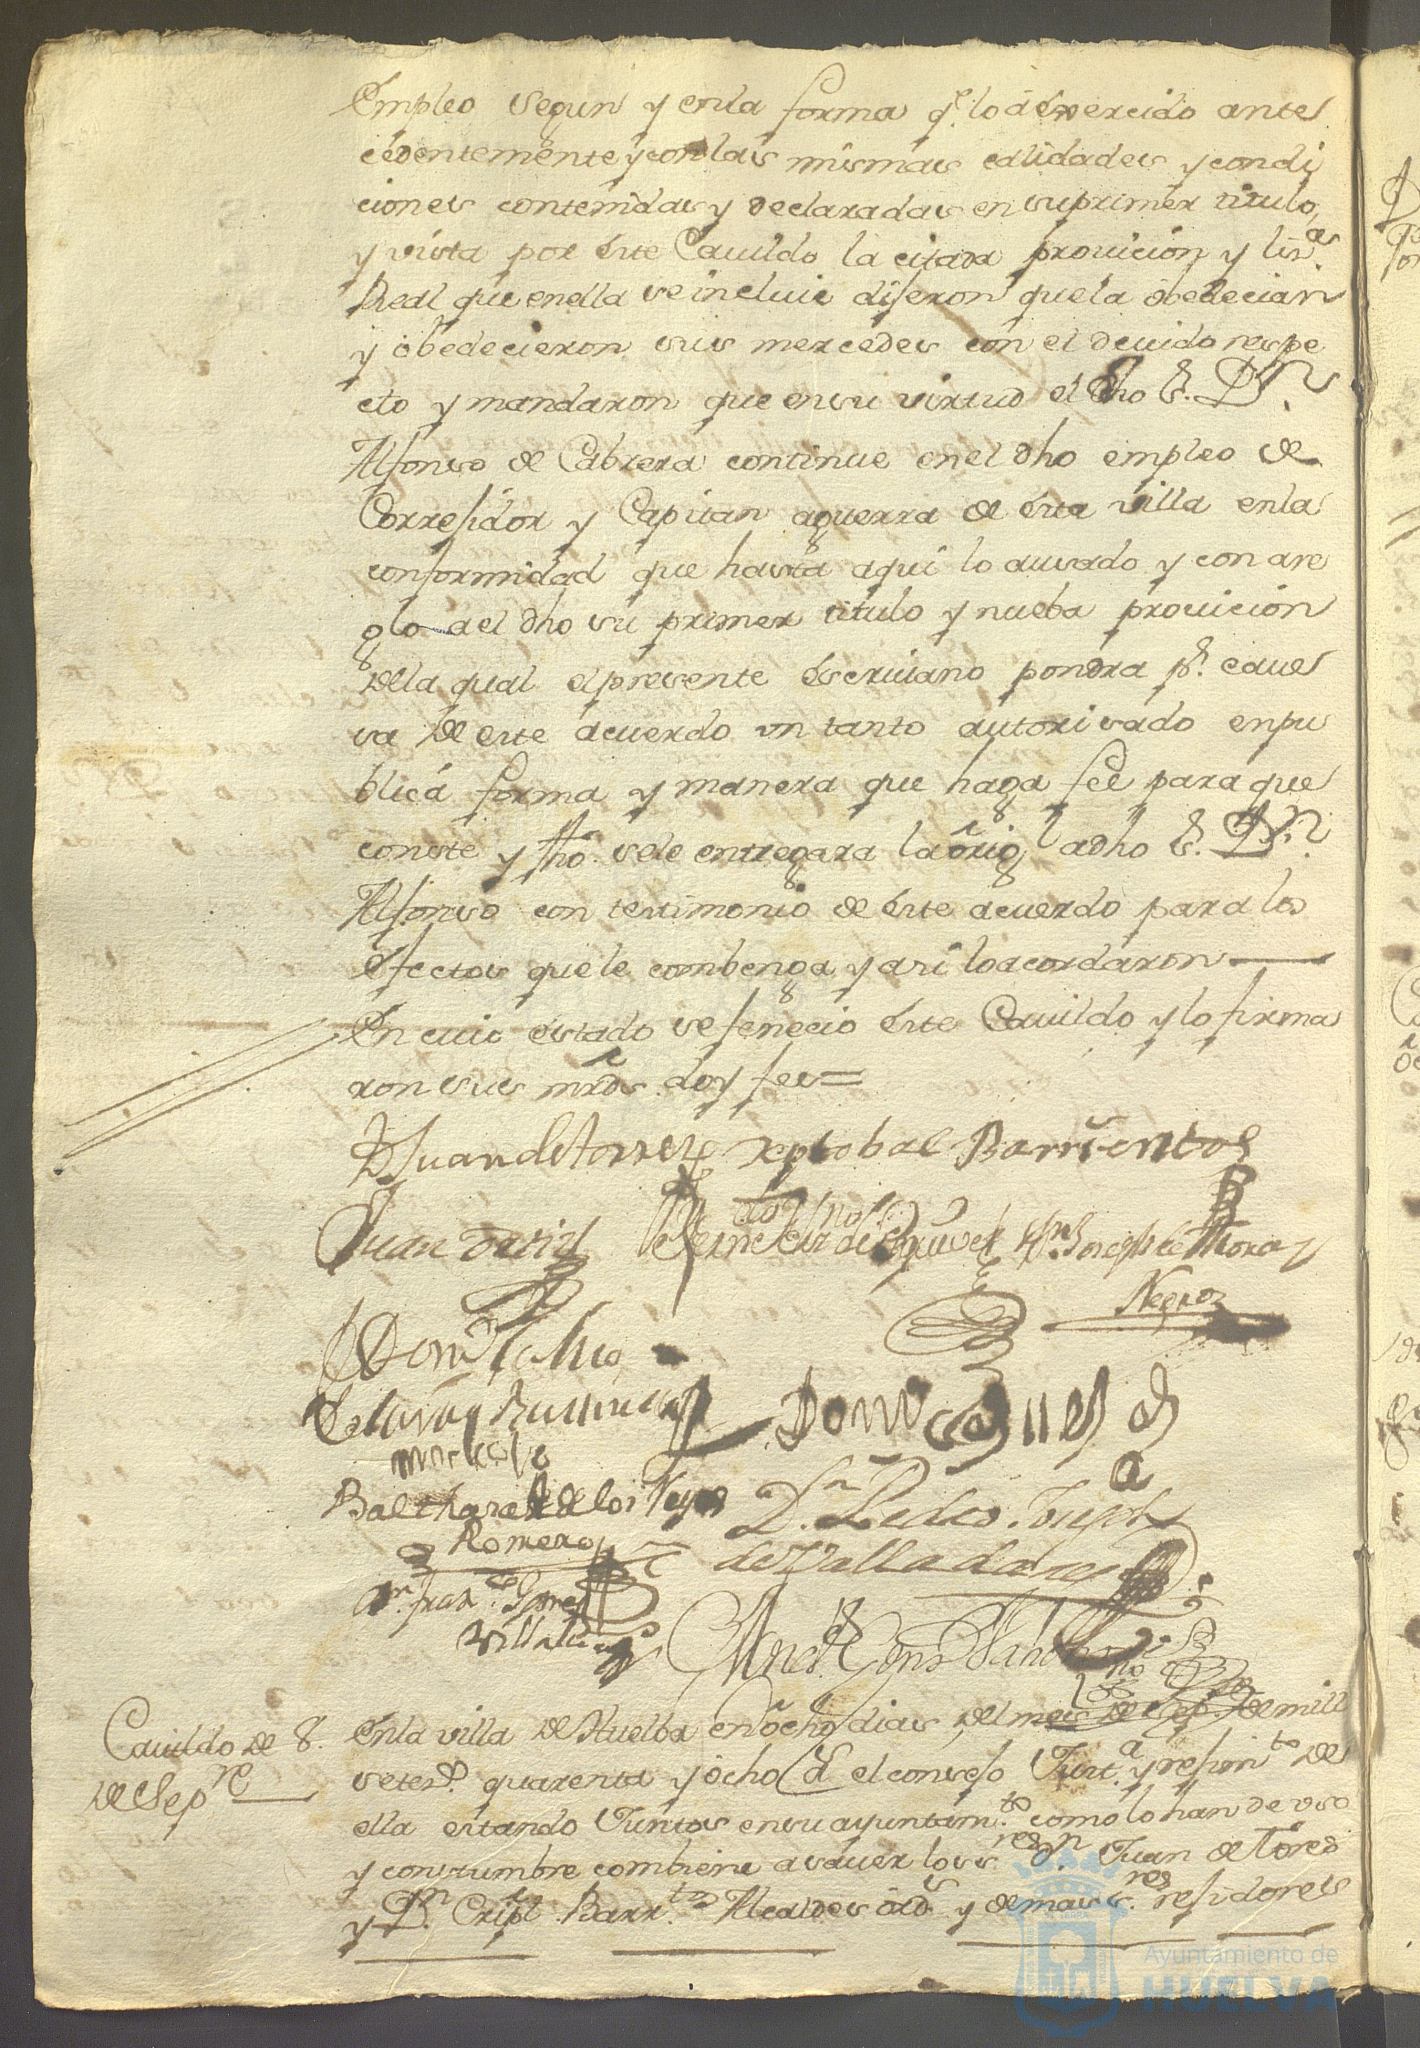 Empleo segun y enla forma q.e lo á éxercido ante
cédentemente y con las mismas calidades y condi
ciones contenidas y declaradas en su primer titulo,
y vista por éste Cauildo la citada prouicion y lis.as
Real que enella se incluie dijeron que la obedecian
y óbedecieron sus mercedes con el deuido respe
cto y mandaron que en su virtud el dho S.r D.n
Alfonso de Cabrera continue en el dho empleo de
Corregidor y Capitan aguerra de ésta villa en la
conformidad que hasta aqui lo a usado y con are
glo a el dho su primer titulo y nueba prouicion
della qual el presente éscriuano pondra p.r caue
sa de este acuerdo un tanto autorisado en pu
blica forma y manera que haga feé para que
conste y fho. sele entregara la órig.l a dho S.r D.n
Alfonso con testimonio de éste acuerdo para los
éfectos que le combenga y asi lo acordaron
En cuio éstado se fenecio éste Cauildo y lo firma
ron sus mrds. doy fee=
D Juan de torres Xptobal Barrientos
Juan David de Esquivel Joseph de Mora
Negro
Balthasar de los Reyes D.n Pedro Joseph
Romero de Valladares
D.n fran.co
Cauildo de 8. En la villa de Huelba en ócho dias del mes de Sep.re de mill
de Sep.re setes. quarenta y ócho el consejo Just.a y regim.to de
ella estando Juntos en su ayuntam.to como lo han de uso
y costumbre combiene a sauer los s.res d.n Juan de Tores
y D.n Cristl. Barr.tos Alcaldes órd.s y demas s.res regidores
Ayuntamiento de
HUELVA